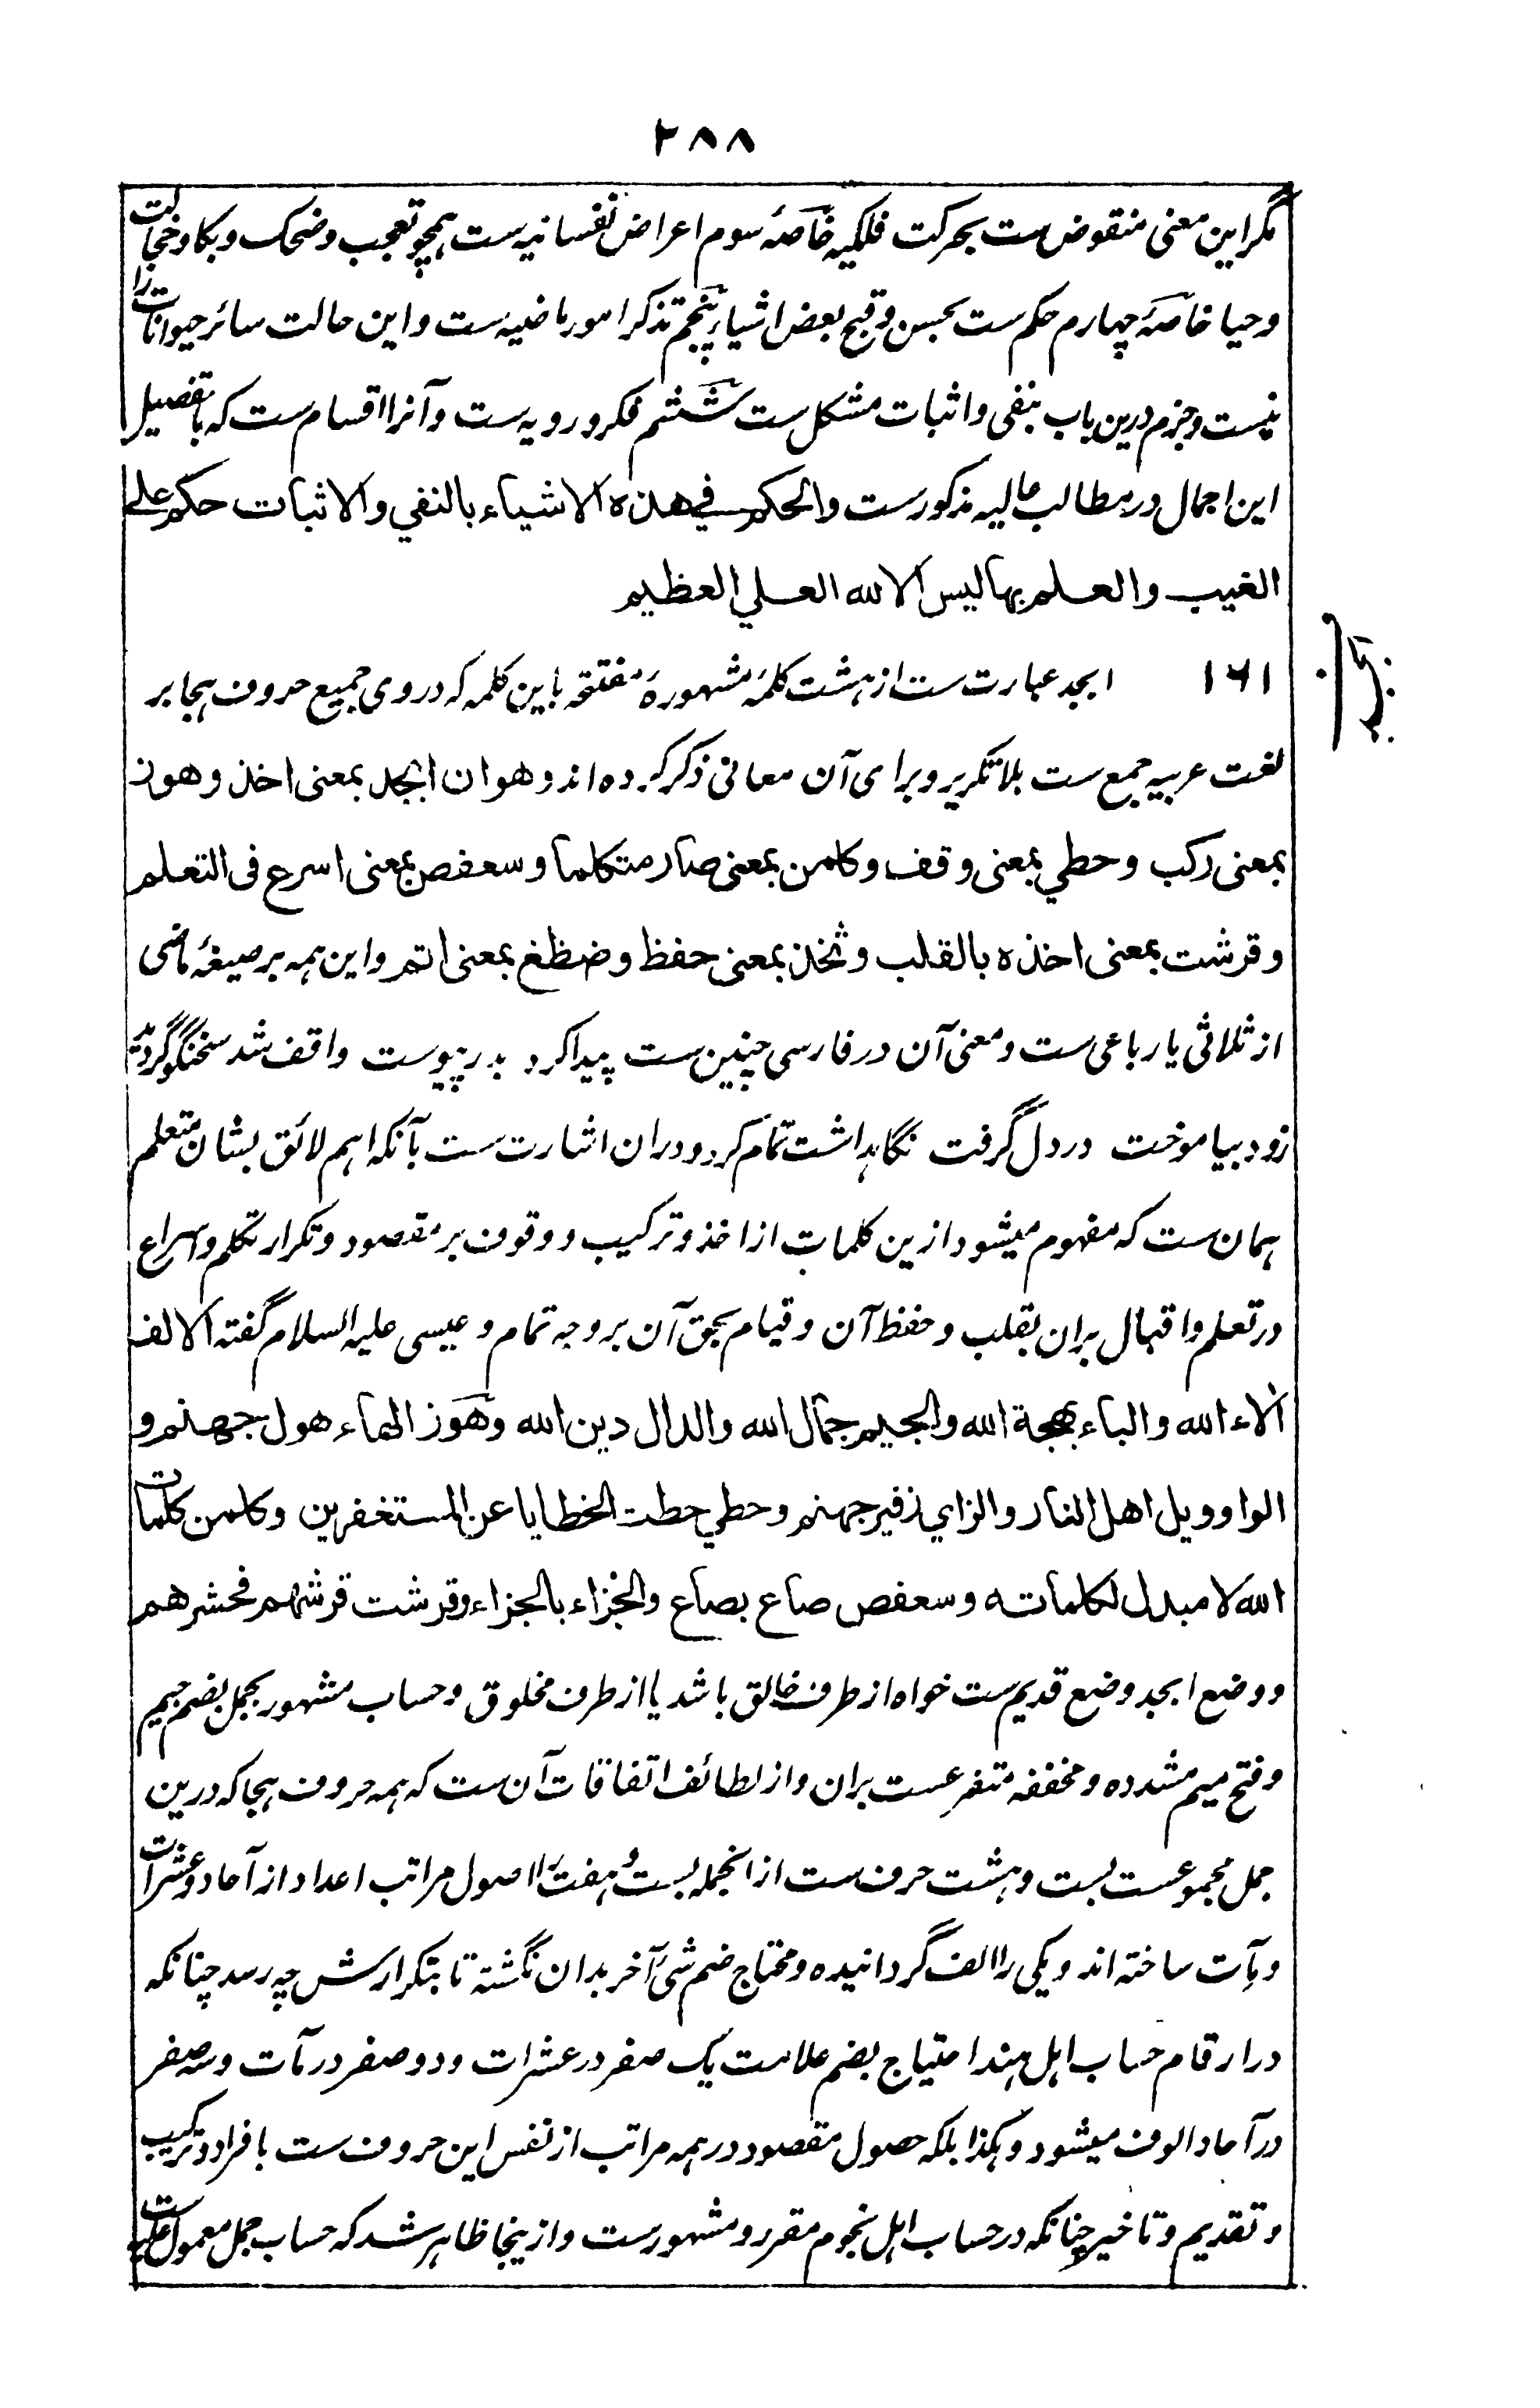 ۲۸۸
مگر این معنی منقوض ست بحرکت فلکیه خاصهٔ سوم اعراض نفسانیه ست همچو تعجب و ضحک و بکا و خجالت
و حیا خاصهٔ چهارم حکم ست بحسن و قبح بعض اشیاء پنجم تذکر امور ماضیه ست و این حالت سائر حیوانات را
نیست و جزم درین باب بنفی و اثبات مشکل ست ششم فکر و رویه ست و آنرا اقسام ست که بتفصیل
این اجمال در مطالب عالیه مذکور ست والحکم في هذه الاشیاء بالنفي والاثبات حکم علی
الغیب والعلم بها لیس الا لله العلي العظیم
۱۶۱ ابجد عبارت ست از هشت کلمهٔ مشهورهٔ مفتتحه باین کلمه که در وی جمیع حروف هجا بر
لغت عربیه جمع ست بلا تکریر و برای آن معانی ذکر کرده اند وهو ان ابجد بمعنی اخذ وهوز
بمعنی رکب وحطي بمعنی وقف وکلمن بمعنی صار متکلما وسعفص بمعنی اسرع فی التعلم
وقرشت بمعنی اخذه بالقلب وثخذ بمعنی حفظ وضظغ بمعنی اتم و این همه بر صیغهٔ ماضی
از ثلاثی یا رباعی ست و معنی آن در فارسی چنین ست پیدا کرد بدر پیوست واقف شد سخنگو گردید
زود بیاموخت در دل گرفت نگاهداشت تمام کرد و دران اشارت ست بآنکه اهم لائق بشان متعلم
همان ست که مفهوم میشود ازین کلمات از اخذ و ترکیب و وقوف بر مقصود و تکرار تکلم و اسراع
در تعلم و اقبال بران بقلب و حفظ آن و قیام بحق آن بر وجه تمام و عیسی علیه السلام گفته الالف
آلاء الله والباء بهجة الله والجیم جمال الله والدال دین الله وهوز الهاء هول جهنم و
الواو ویل اهل النار والزاي زفیر جهنم وحطي حطت الخطایا عن المستغفرین وکلمن کلمات
الله لا مبدل لکلماته وسعفص صاع بصاع والجزاء بالجزاء وقرشت قرشهم فحشرهم
و وضع ابجد وضع قدیم ست خواه از طرف خالق باشد یا از طرف مخلوق و حساب مشهور بجمل بضم جیم
و فتح میم مشدده و مخففه متفرعست بران و از لطائف اتفاقات آن ست که همه حروف هجا که درین
جمل مجموعست بست و هشت حرف ست ازانجمله بست و هفت را اصول مراتب اعداد از آحاد و عشرات
و مآت ساخته اند و یکی را الف گردانیده و محتاج ضم شیٔ آخر بدان نگشته تا بتکرارش چه رسد چنانکه
در ارقام حساب اهل هند احتیاج بضم علامت یک صفر در عشرات و دو صفر در مآت و سه صفر
در آحاد الوف میشود و هکذا بلکه حصول مقصود در همه مراتب از نفس این حروف ست بافراد و ترکیب
و تقدیم و تاخیر چنانکه در حساب اهل نجوم مقرر و مشهور ست و ازینجا ظاهر شد که حساب جمل معمول علیه ست